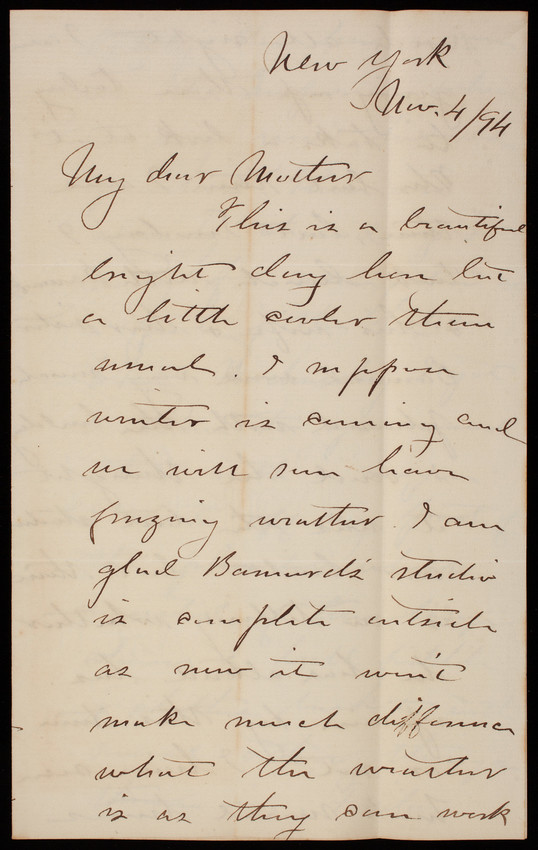 New York
Nov. 4/94
My dear Mother
This is a beautiful
bright day here but
a little cooler than
usual. I suppose
winter is coming and
we will soon have
freezing weather. I am
glad Barnard's studio
is complete outside
as now it won't
make much difference
what the weather
is as they can work